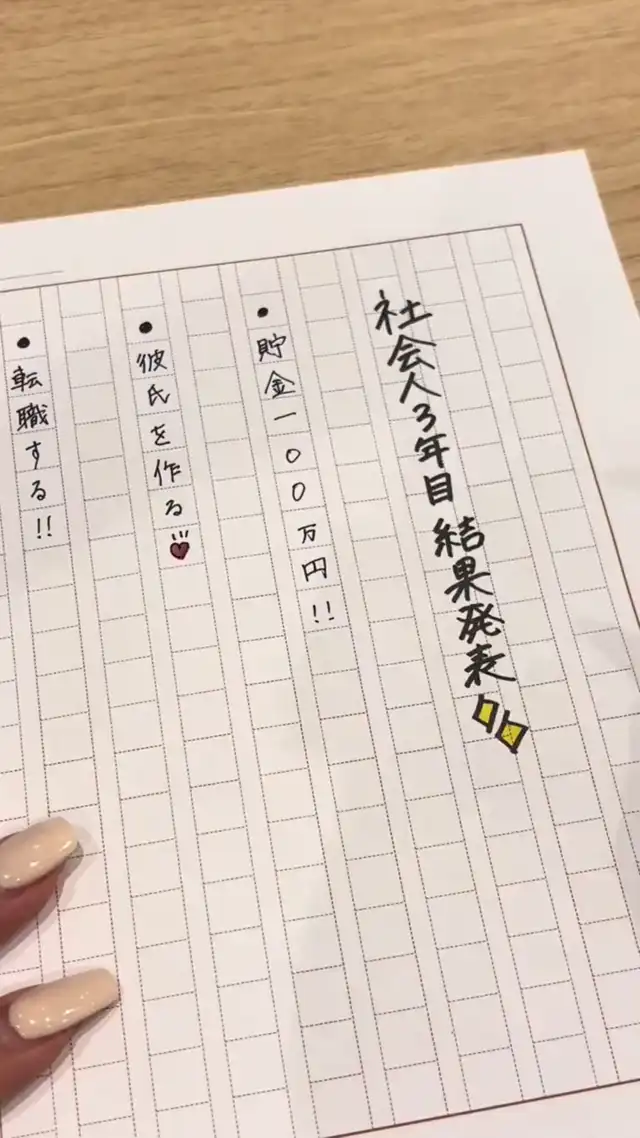 社会人3年目 結果発表
•貯金一〇〇万円!!
•彼氏を作る
•転職する!!